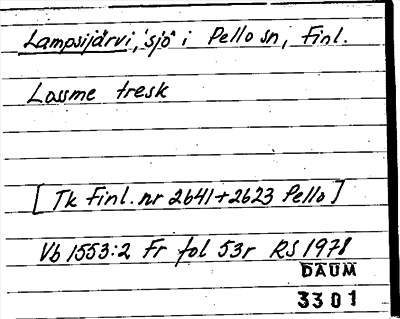 Lampsijärvi, 'sjö' i Pello sn, Finl.
Lassme tresk
[Tk Finl. nr 2641+2623 Pello]
Vb 1553:2 Fr fol 53r RS 1978
DAUM
3301